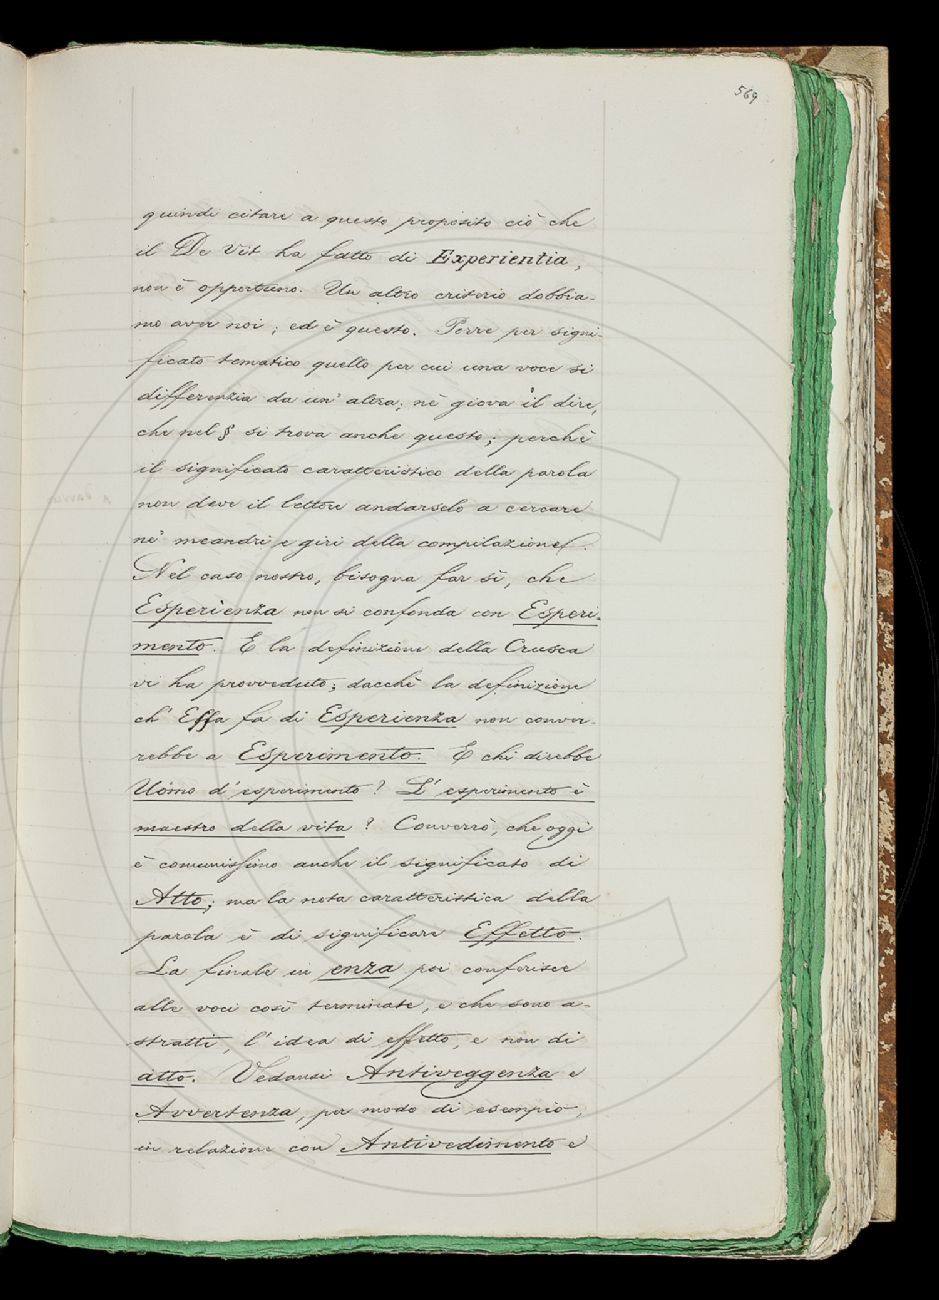 569
quindi citare a questo proposito ciò che
il De Vit ha fatto di Experientia,
non è opportuno. Un altro criterio dobbia-
mo aver noi; ed è questo. Porre per signi-
ficato tematico quello per cui una voce si
differenzia da un' altra; nè giova il dire,
che nel § si trova anche questo; perchè
il significato caratteristico della parola
non deve il lettore andarselo a cercare
ne' meandri e giri della compilazione.
Nel caso nostro, bisogna far sì, che
Esperienza non si confonda con Esperi-
mento. E la definizione della Crusca
vi ha provveduto; dacchè la definizione
ch' Essa fa di Esperienza non conver-
rebbe a Esperimento. E chi direbbe
Uomo d' esperimento? L' esperimento è
maestro della vita? Converrò, che oggi
è comunissimo anche il significato di
Atto; ma la nota caratteristica della
parola è di significare Effetto.
La finale in enza poi conferisce
alle voci così terminate, e che sono a-
stratti, l' idea di effetto, e non di
atto. Vedansi Antiveggenza e
Avvertenza, per modo di esempio,
in relazione con Antivedimento e